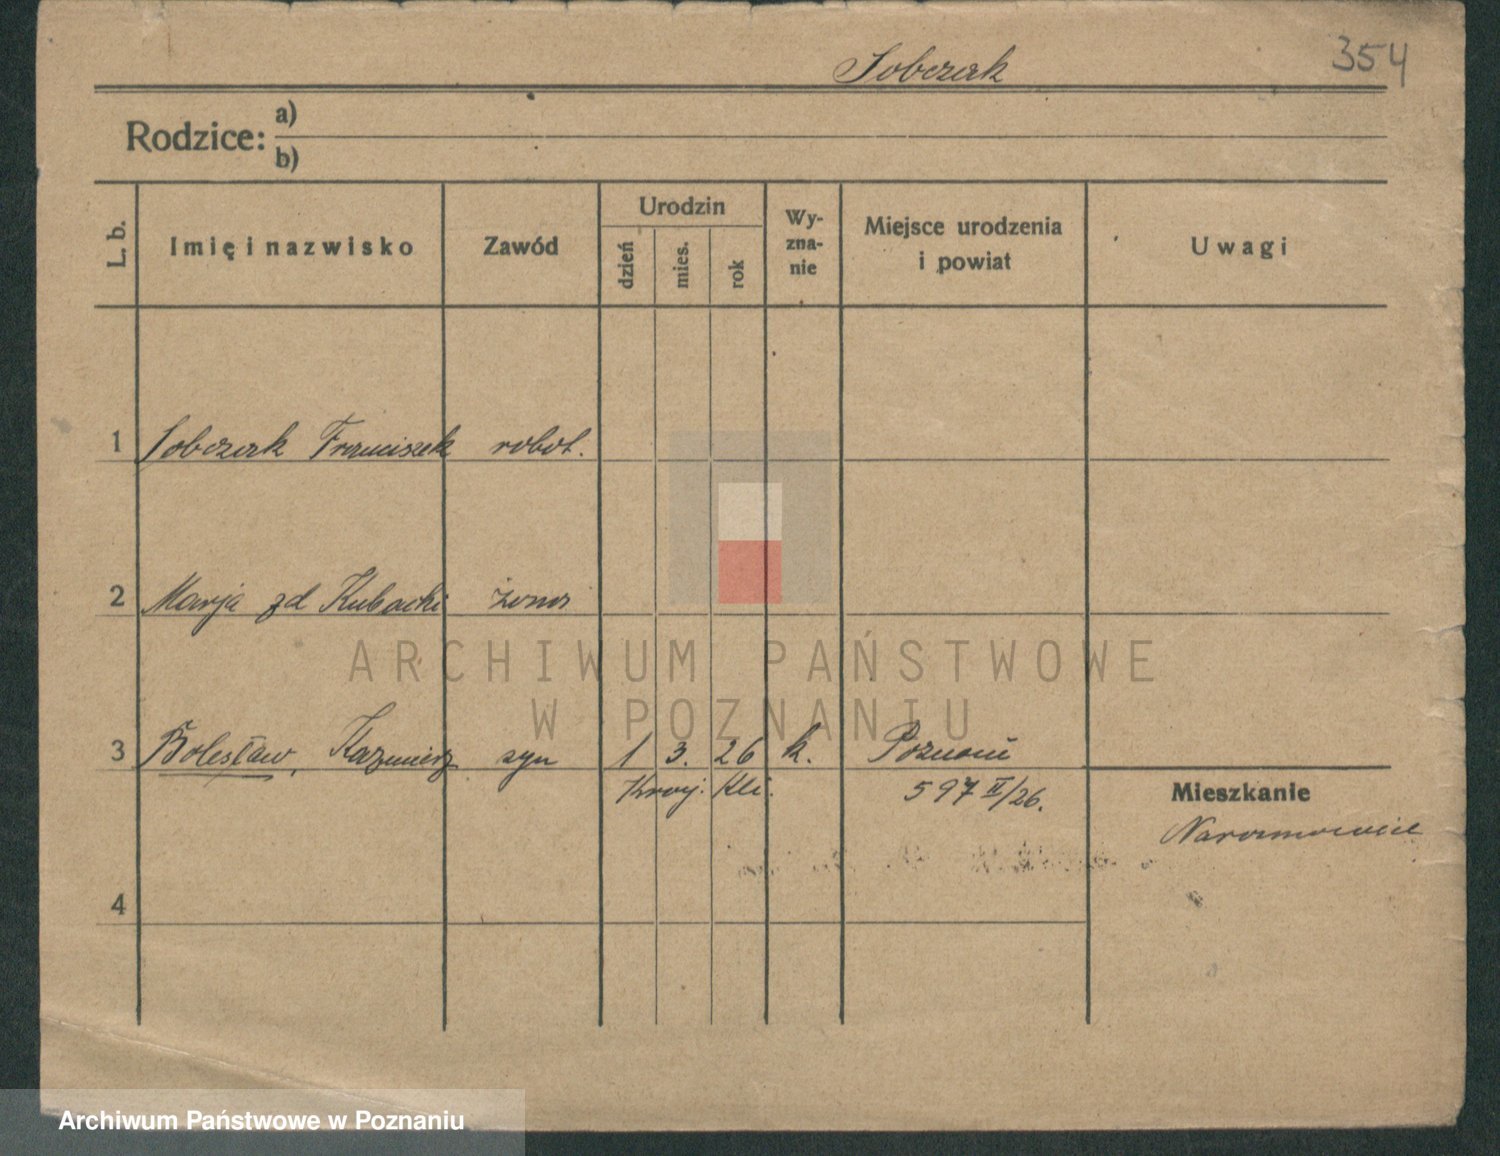 Sobczak 354
Rodzice: a)
b)
L. b. Imię i nazwisko Zawód Urodzin dzień mies. rok Wy-zna-nie Miejsce urodzenia i powiat Uwagi
1 Sobczak Franciszek robot.
2 Marja zd Kubacki żona
ARCHIWUM PAŃSTWOWE
W POZNANIU
3 Bolesław, Kazimierz syn 1 3. 26 k. Poznań
597 II/26.
Mieszkanie
Naramowice
4
Archiwum Państwowe w Poznaniu